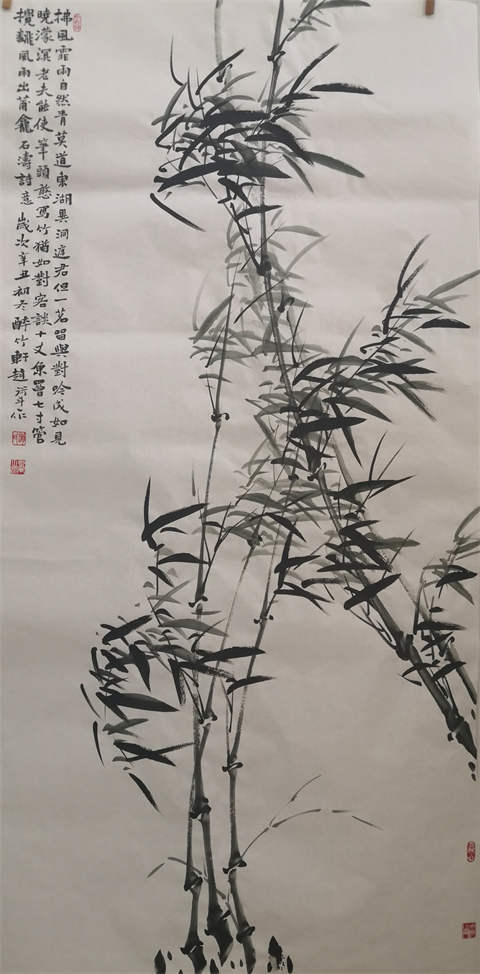 拂風霑雨自然青莫道東湖異洞庭君但一茗留與對吟成如見
曉濛溟老夫能使筆頭憨寫竹猶如對客談十丈魚罾七寸管
攪翻風雨出莆龕石濤詩意歲次辛丑初冬醉竹軒趙 作